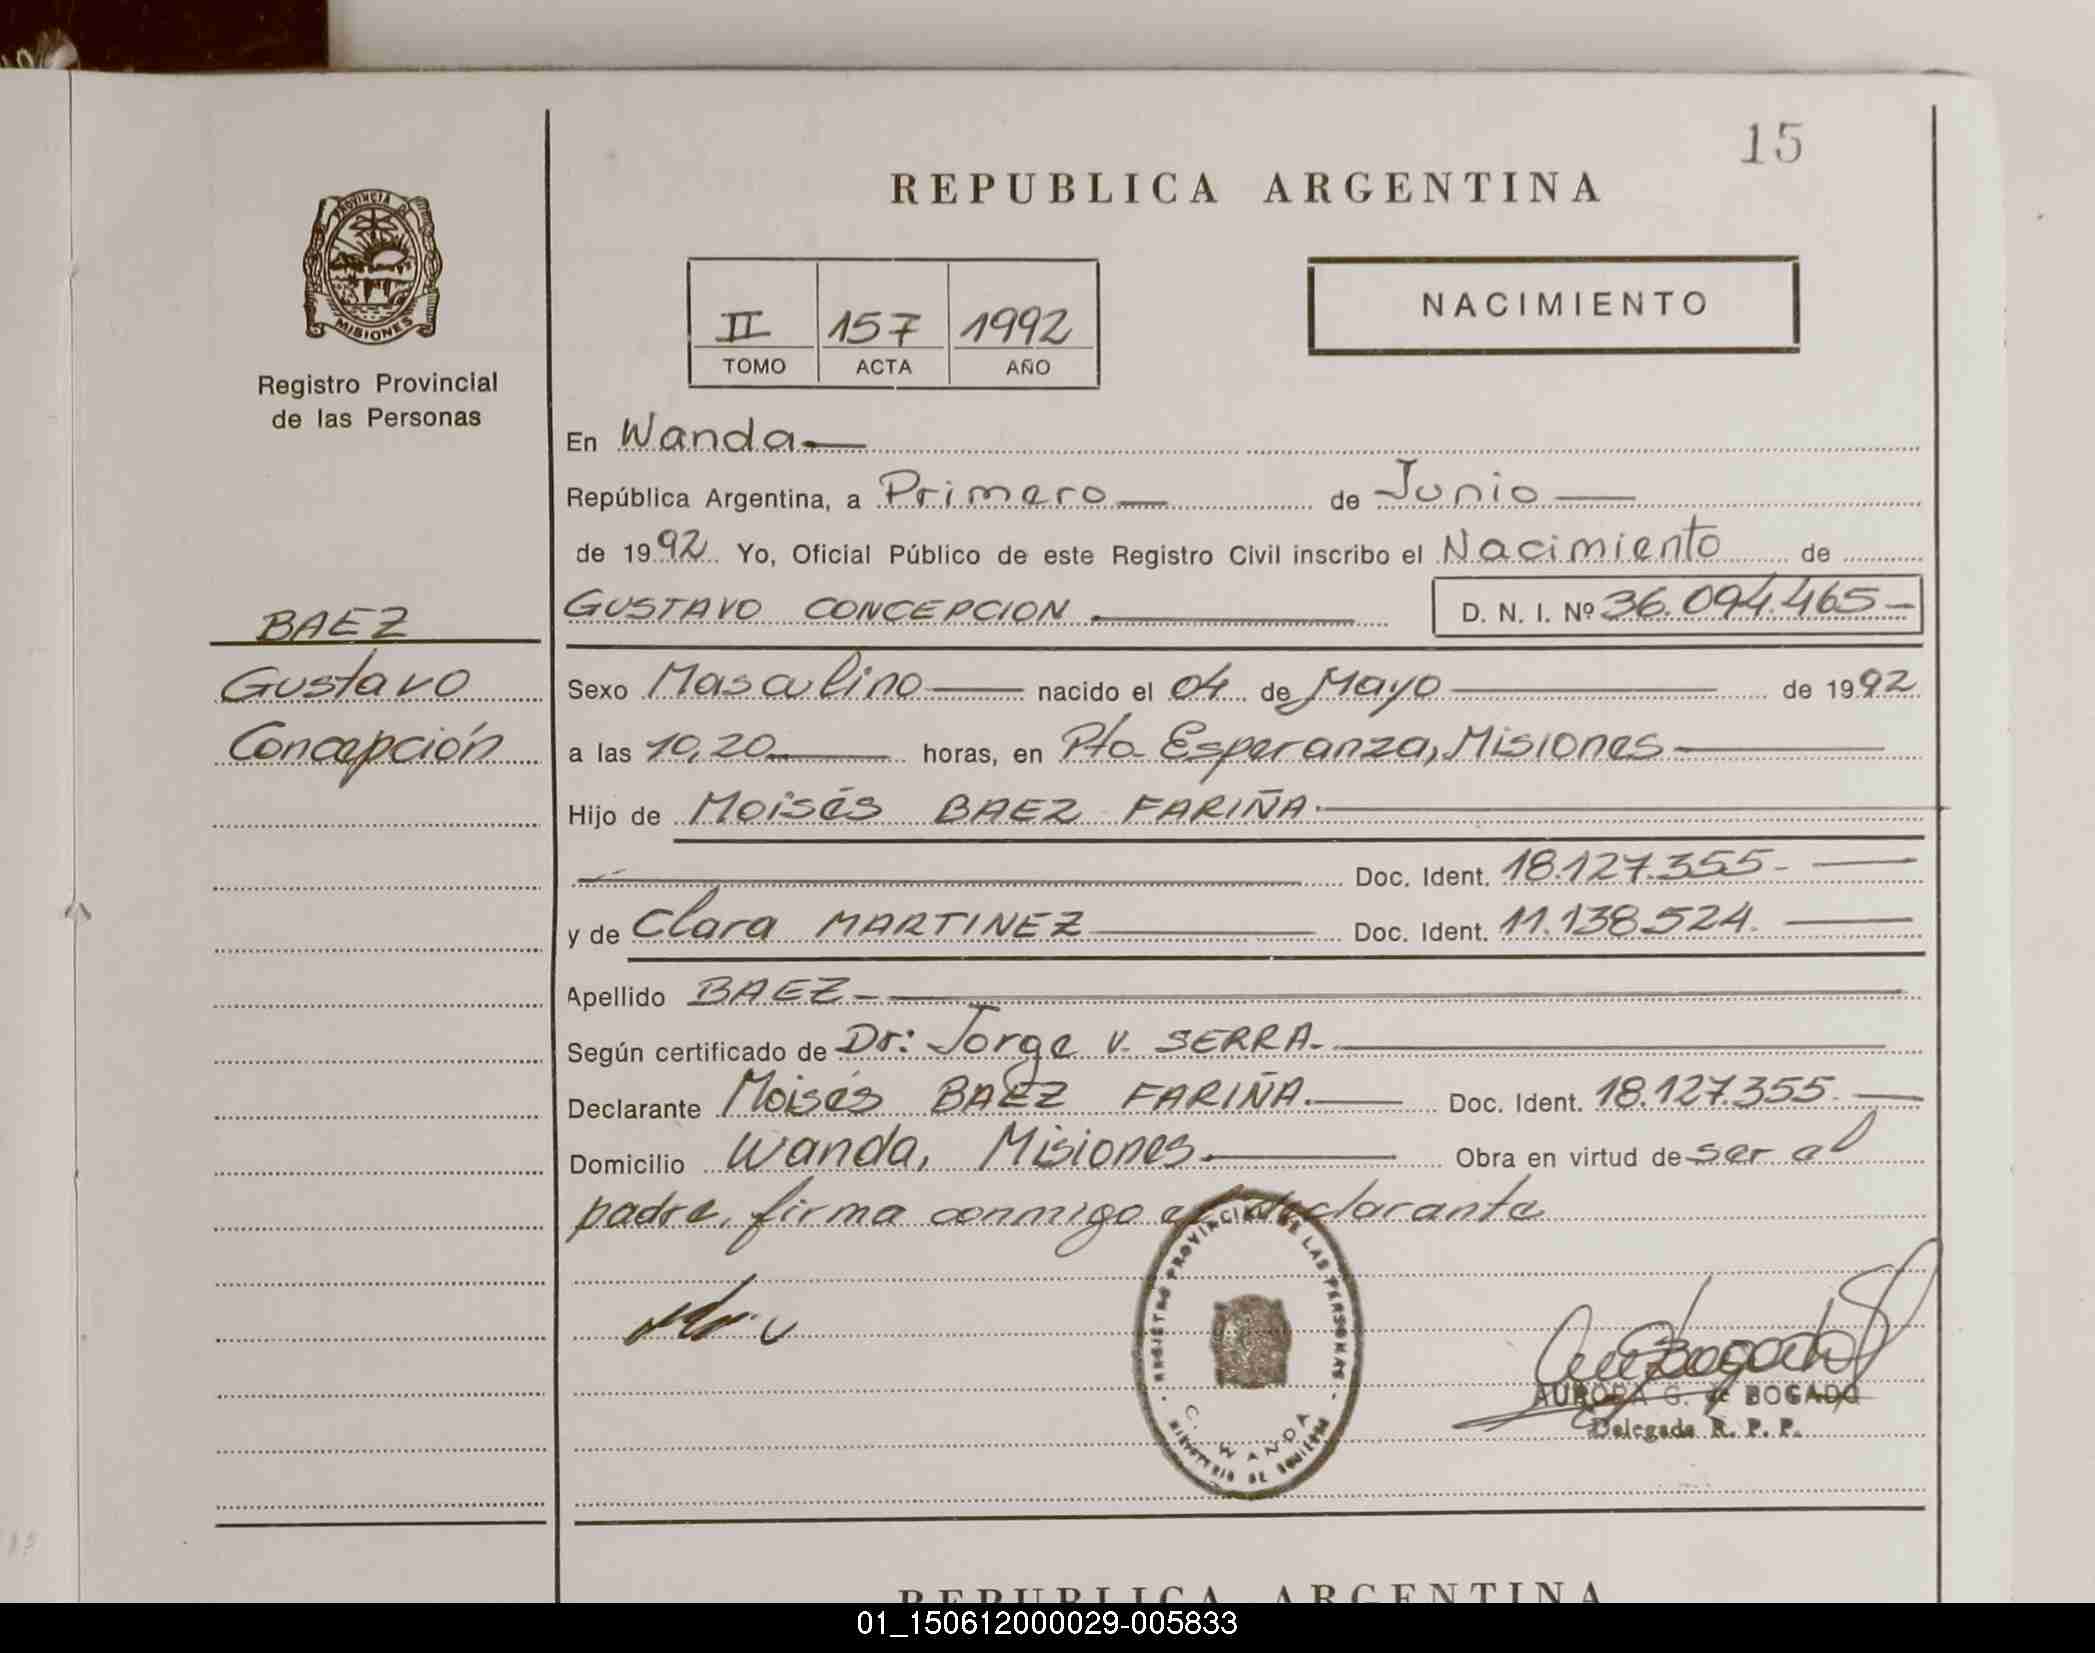 15
REPUBLICA ARGENTINA
PROVINCIA DE
MISIONES
Registro Provincial
de las Personas
II 157 1992
TOMO ACTA AÑO
NACIMIENTO
En Wanda
República Argentina, a Primero de Junio
de 1992 Yo, Oficial Público de este Registro Civil inscribo el Nacimiento de
GUSTAVO CONCEPCION D. N. I. Nº 36.094.465-
BAEZ
Gustavo
Concepción
Sexo Masculino nacido el 04 de Mayo de 1992
a las 10,20 horas, en Pto Esperanza, Misiones
Hijo de Moisés BAEZ FARIÑA
Doc. Ident. 18.127.355-
y de Clara MARTINEZ Doc. Ident. 11.138.524.
Apellido BAEZ
Según certificado de Dr: Jorge V. SERRA.
Declarante Moisés BAEZ FARIÑA. Doc. Ident. 18.127.355.
Domicilio Wanda, Misiones. Obra en virtud de ser el
padre, firma conmigo el declarante
REGISTRO PROVINCIAL DE LAS PERSONAS
C. WANDA
MINISTERIO DE GOBIERNO
AURORA G. de BOGADO
Delegada R. P. P.
REPUBLICA ARGENTINA
01_150612000029-005833